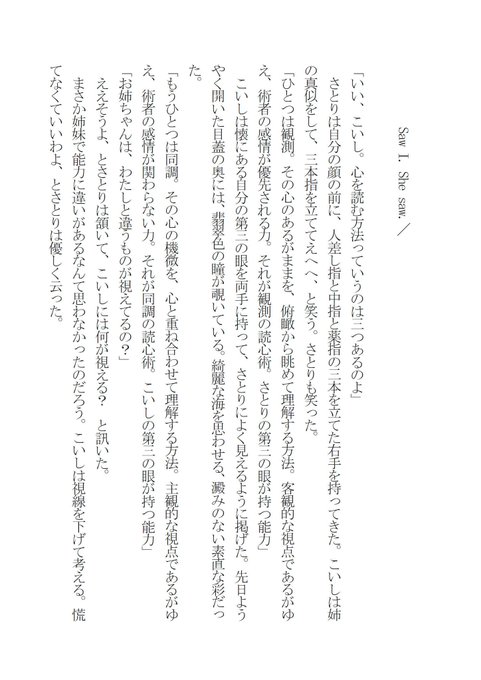 Saw I. She saw.／
「いい、こいし。心を読む方法っていうのは三つあるのよ」
　さとりは自分の顔の前に、人差し指と中指と薬指の三本を立てた右手を持ってきた。こいしは姉
の真似をして、三本指を立ててえへへ、と笑う。さとりも笑った。
「ひとつは観測。その心のあるがままを、俯瞰から眺めて理解する方法。客観的な視点であるがゆ
え、術者の感情が優先される力。それが観測の読心術。さとりの第三の眼が持つ能力」
　こいしは懐にある自分の第三の眼を両手に持って、さとりによく見えるように掲げた。先日よう
やく開いた目蓋の奥には、翡翠色の瞳が覗いている。綺麗な海を思わせる、澱みのない素直な彩だっ
た。
「もうひとつは同調。その心の機微を、心と重ね合わせて理解する方法。主観的な視点であるがゆ
え、術者の感情が関わらない力。それが同調の読心術。こいしの第三の眼が持つ能力」
「お姉ちゃんは、わたしと違うものが視えてるの？」
　ええそうよ、とさとりは頷いて、こいしには何が視える？　と訊いた。
　まさか姉妹で能力に違いがあるなんて思わなかったのだろう。こいしは視線を下げて考える。慌
てなくていいわよ、とさとりは優しく云った。